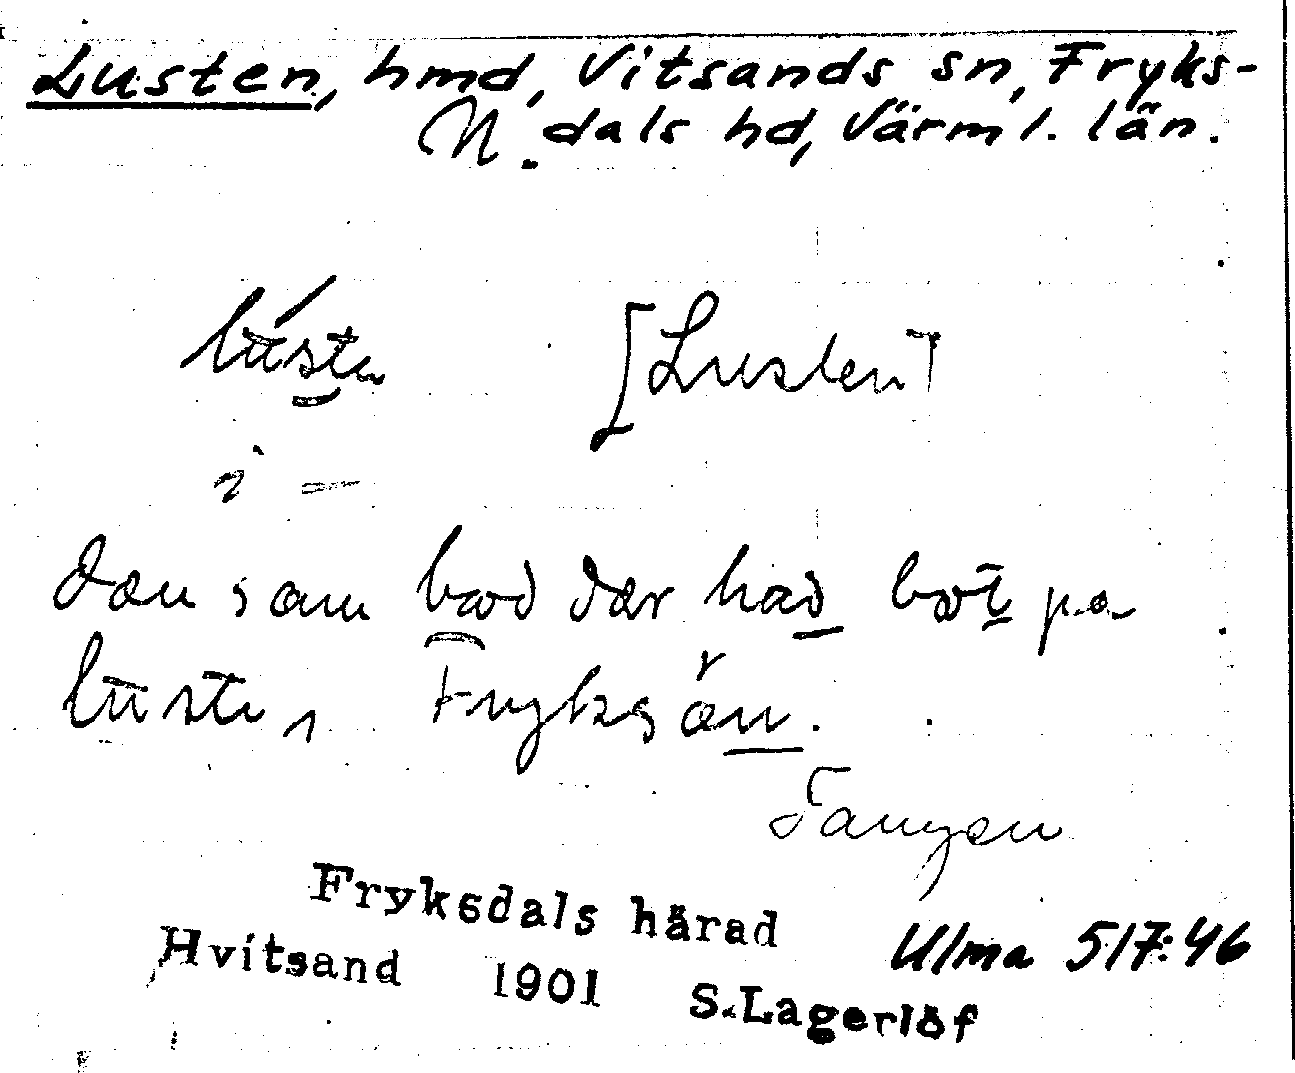 Lusten, hmd, Vitsands sn, Fryks-
N. dals hd, Värml. län.
lustn [Lusten]
i –
dæn sam bod dær had bot pa
lustn, Fryksån.
Tangen
Fryksdals härad
Hvitsand 1901 S.Lagerlöf
Ulma 517:46